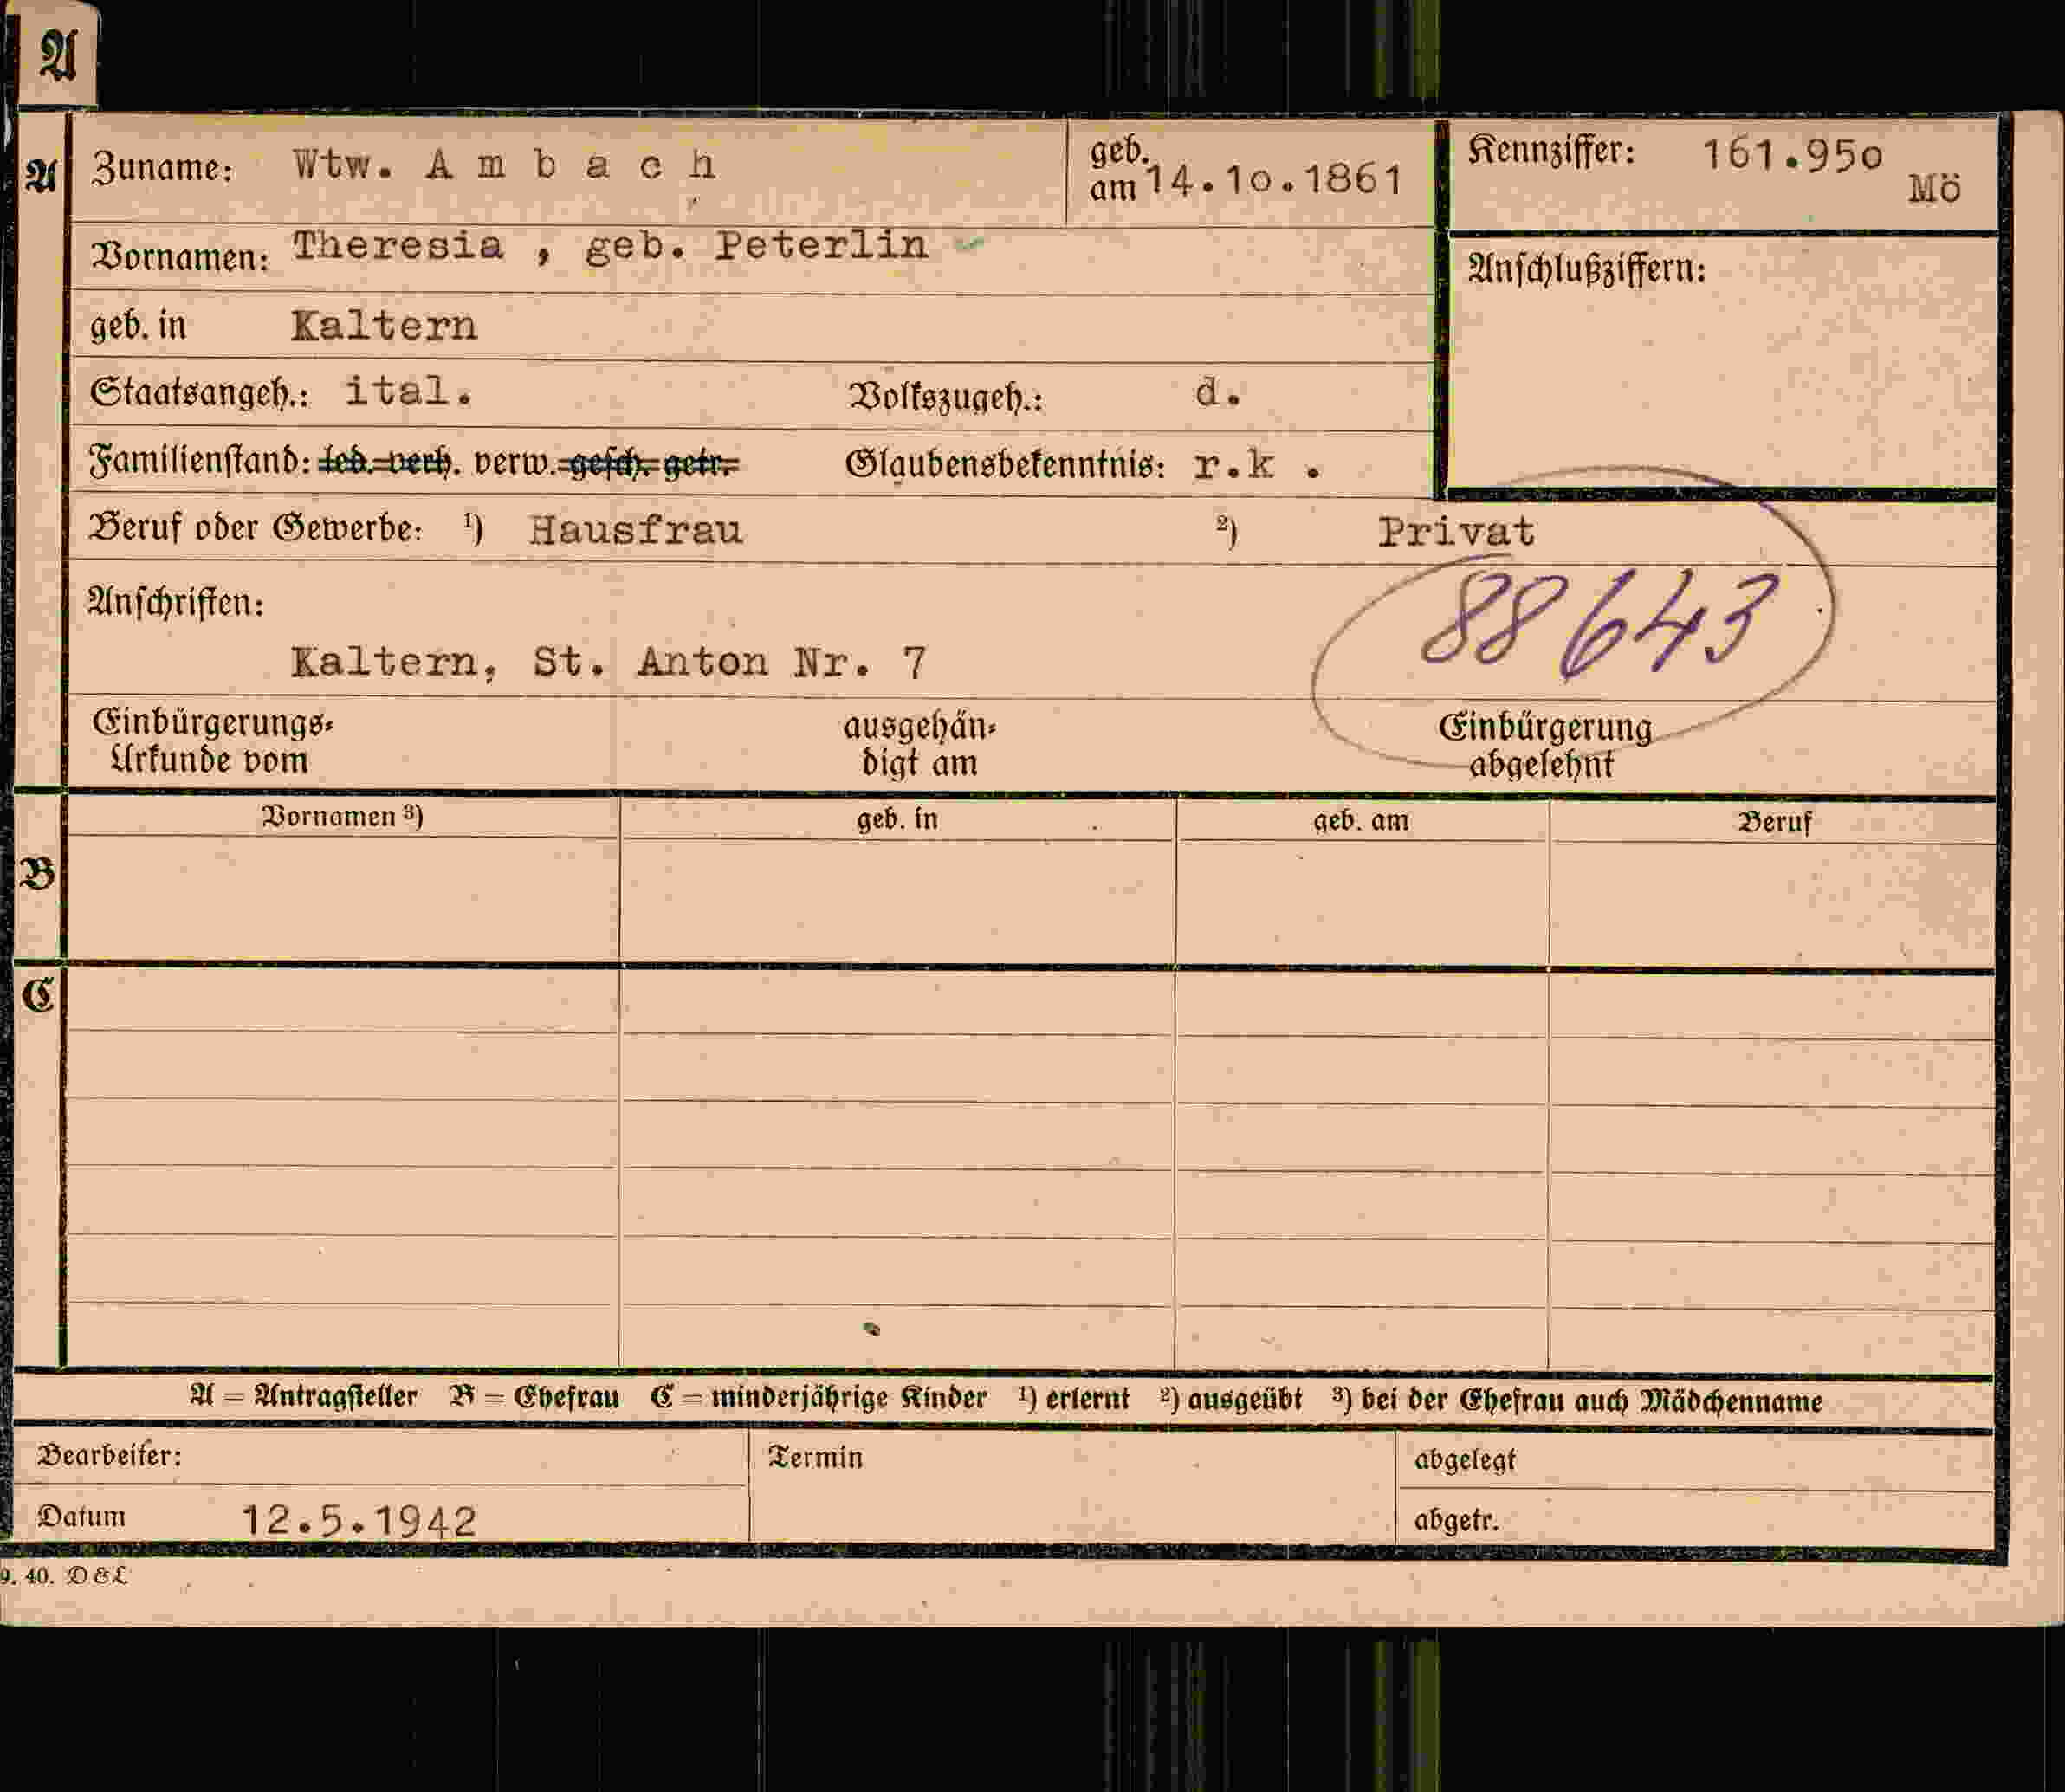 A
A
Zuname: Wtw. A m b a c h
geb. am 14.10.1861
Kennziffer: 161.950
Mö
Vornamen: Theresia , geb. Peterlin
Anschlußziffern:
geb. in Kaltern
Staatsangeh.: ital. Volkszugeh.: d.
Familienstand: led. verh. verw. gesch. getr. Glaubensbekenntnis: r.k .
Beruf oder Gewerbe: ¹) Hausfrau ²) Privat
88643
Anschriften:
Kaltern, St. Anton Nr. 7
Einbürgerungs-
Urkunde vom
ausgehän-
digt am
Einbürgerung
abgelehnt
Vornamen ³) geb. in geb. am Beruf
B
C
A = Antragsteller B = Ehefrau C = minderjährige Kinder ¹) erlernt ²) ausgeübt ³) bei der Ehefrau auch Mädchenname
Bearbeiter: Termin abgelegt
Datum 12.5.1942 abgetr.
9. 40. D&L